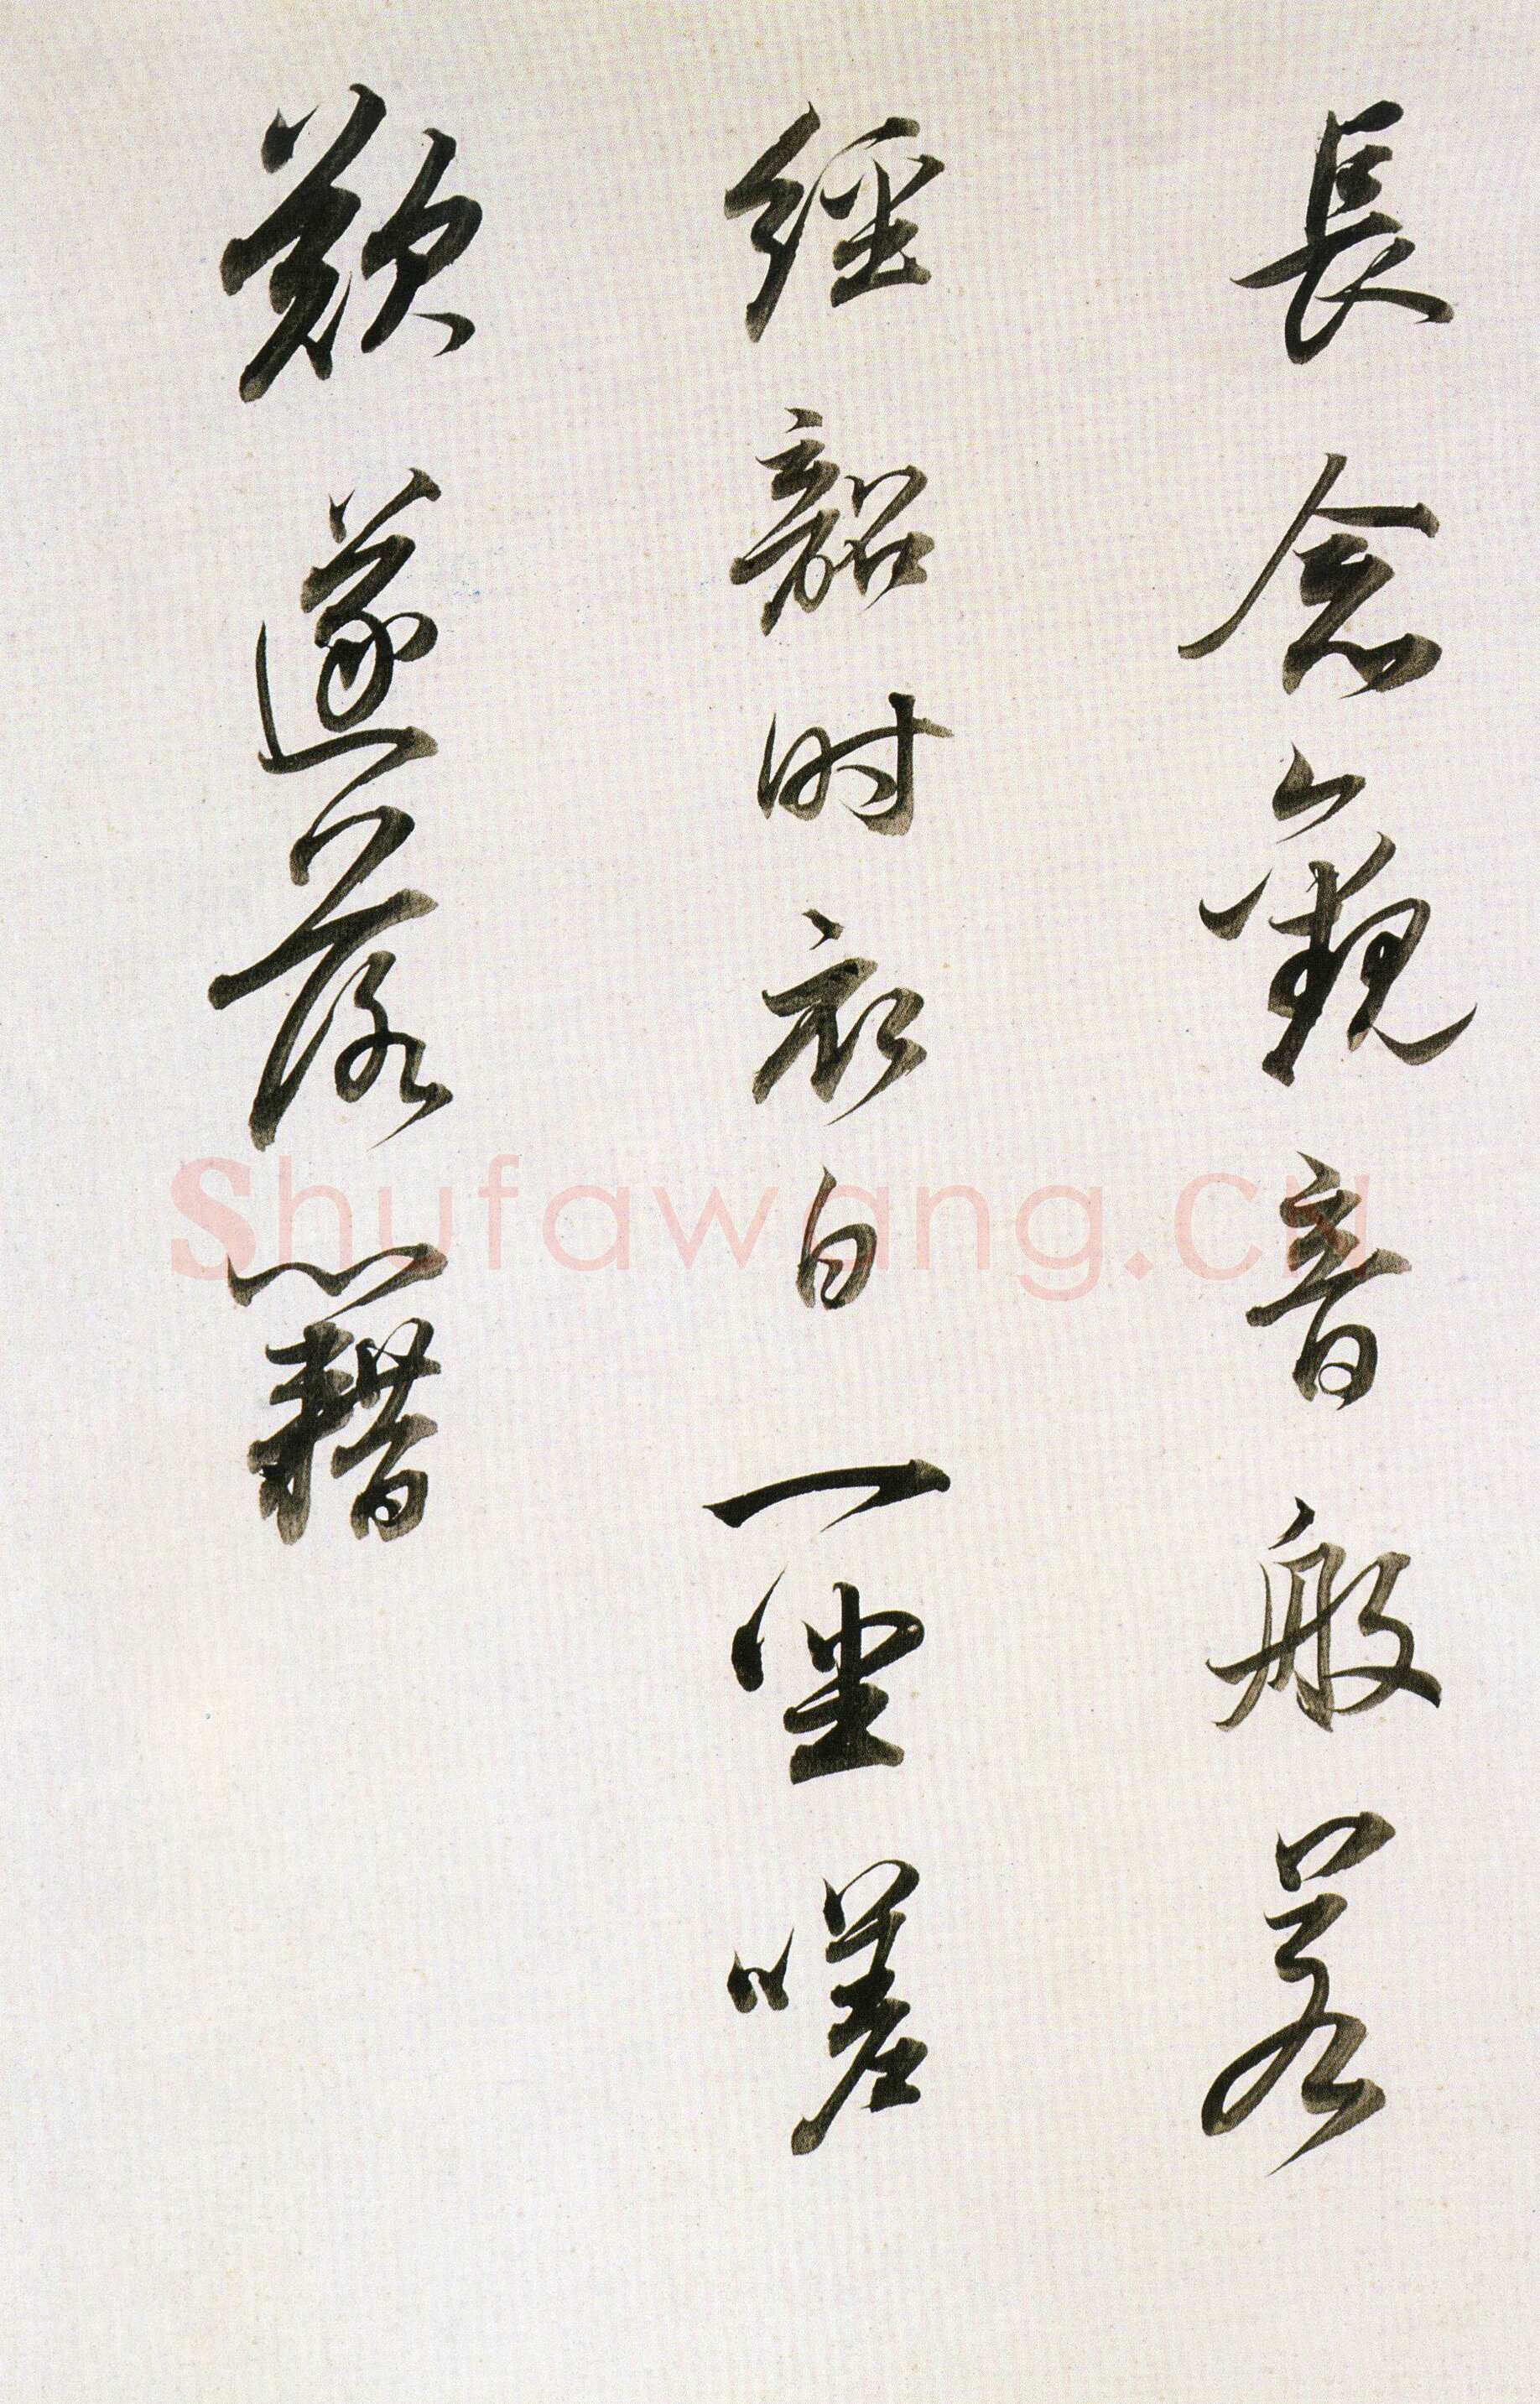 長念觀音般若
經韶时衣白一坐嗟
歎遂落籍
Shufawang.cn